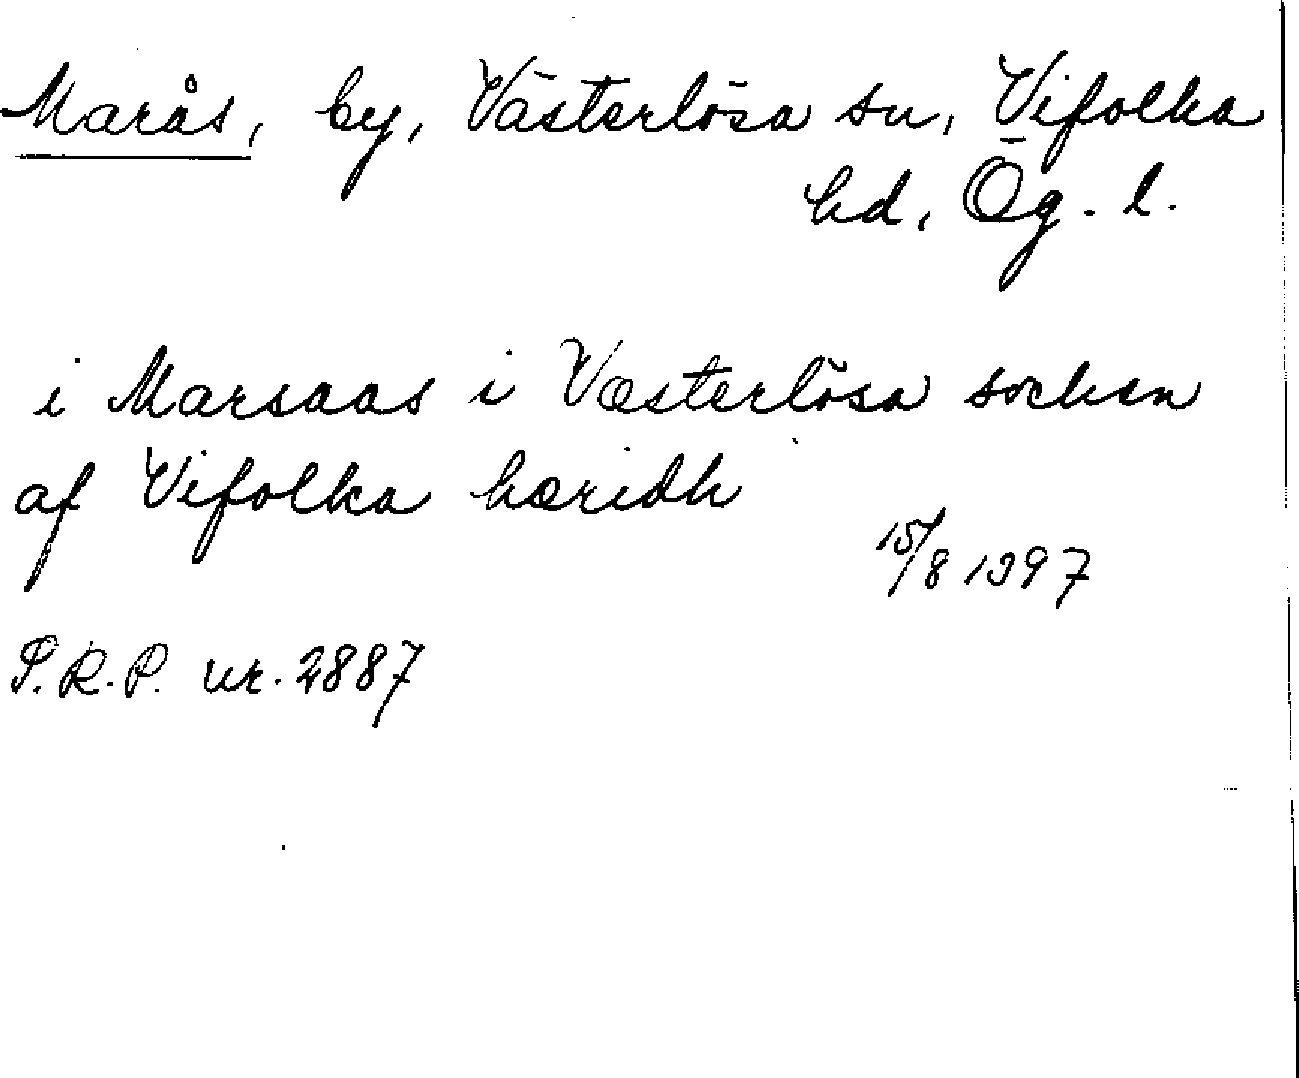 Marås, by, Västerlösa sn, Vifolka
hd, Ög. l.
i Marsaas i Væsterlösa soken
af Vifolka hæridh
15/8 1397
S.R.P. nr. 2887